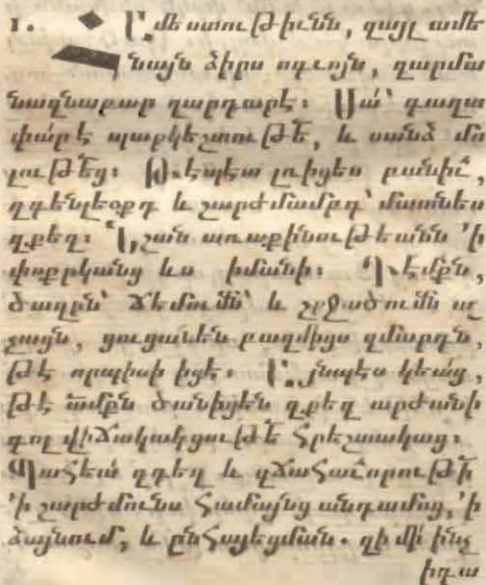 1. Համեստութիւնն, զայլ ամե
նայն ձիրս ոգւոյն, զարմա
նազնաբար զարդարէ։ Սա՛ գաղա
փար է պարկեշտութե՛, և սանձ մո
լութեց։ Թէպէտ լռիցես բանիւ՛,
զգենլեօքդ և շարժմամբդ՝ մատնես
զքեզ։ Նշան առաքինութեանն ՚ի
փոքրկանց ևս իմանի։ Դէմքն,
ծաղրն՝ ճեմումն՝ և շրջածումն ա
չացն, ցուցանեն բազմիցս զմարդն,
թէ որպիսի իցէ։ Այնպէս կեաց,
թէ ամքն ծանիցեն զքեզ արժանի
գոլ վիճակակցութե՛ հրեշտակաց։
Պահեա՛ զգեղ և զճահաւորութի՛
՚ի շարժմունս համայնց անդամոց, ՚ի
ձայնում, և ընհայեցման. զի մի ինչ
իղա